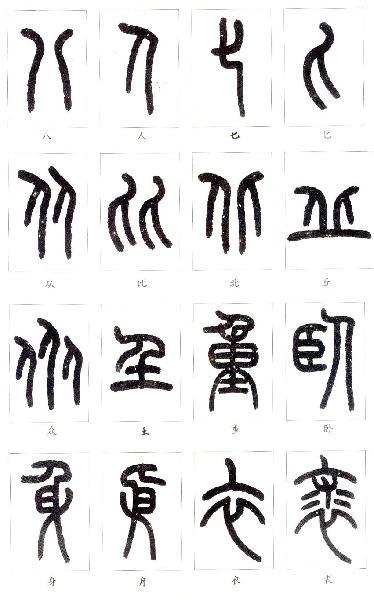 八 人 七 匕
从 比 北 丘
众 重 卧
身 衣 裘